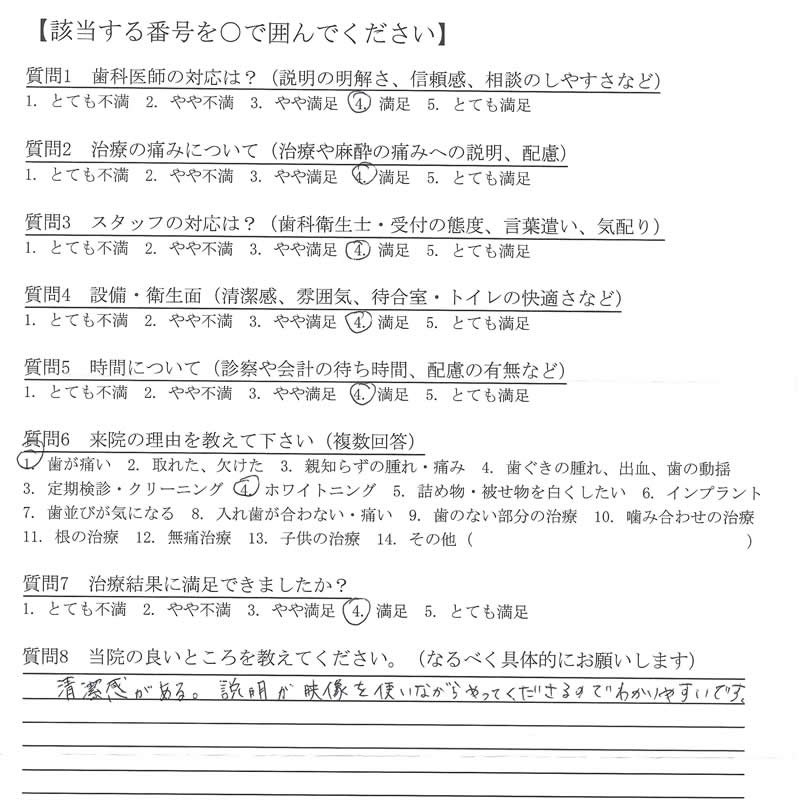 【該当する番号を○で囲んでください】
質問1　歯科医師の対応は？（説明の明解さ、信頼感、相談のしやすさなど）
1. とても不満 2. やや不満 3. やや満足 4. 満足 5. とても満足
質問2　治療の痛みについて（治療や麻酔の痛みへの説明、配慮）
1. とても不満 2. やや不満 3. やや満足 4. 満足 5. とても満足
質問3　スタッフの対応は？（歯科衛生士・受付の態度、言葉遣い、気配り）
1. とても不満 2. やや不満 3. やや満足 4. 満足 5. とても満足
質問4　設備・衛生面（清潔感、雰囲気、待合室・トイレの快適さなど）
1. とても不満 2. やや不満 3. やや満足 4. 満足 5. とても満足
質問5　時間について（診察や会計の待ち時間、配慮の有無など）
1. とても不満 2. やや不満 3. やや満足 4. 満足 5. とても満足
質問6　来院の理由を教えて下さい（複数回答）
1. 歯が痛い 2. 取れた、欠けた 3. 親知らずの腫れ・痛み 4. 歯ぐきの腫れ、出血、歯の動揺
3. 定期検診・クリーニング 4. ホワイトニング 5. 詰め物・被せ物を白くしたい 6. インプラント
7. 歯並びが気になる 8. 入れ歯が合わない・痛い 9. 歯のない部分の治療 10. 噛み合わせの治療
11. 根の治療 12. 無痛治療 13. 子供の治療 14. その他（　　　）
質問7　治療結果に満足できましたか？
1. とても不満 2. やや不満 3. やや満足 4. 満足 5. とても満足
質問8　当院の良いところを教えてください。（なるべく具体的にお願いします）
清潔感がある。説明が映像を使いながらやってくださるのでわかりやすいです。